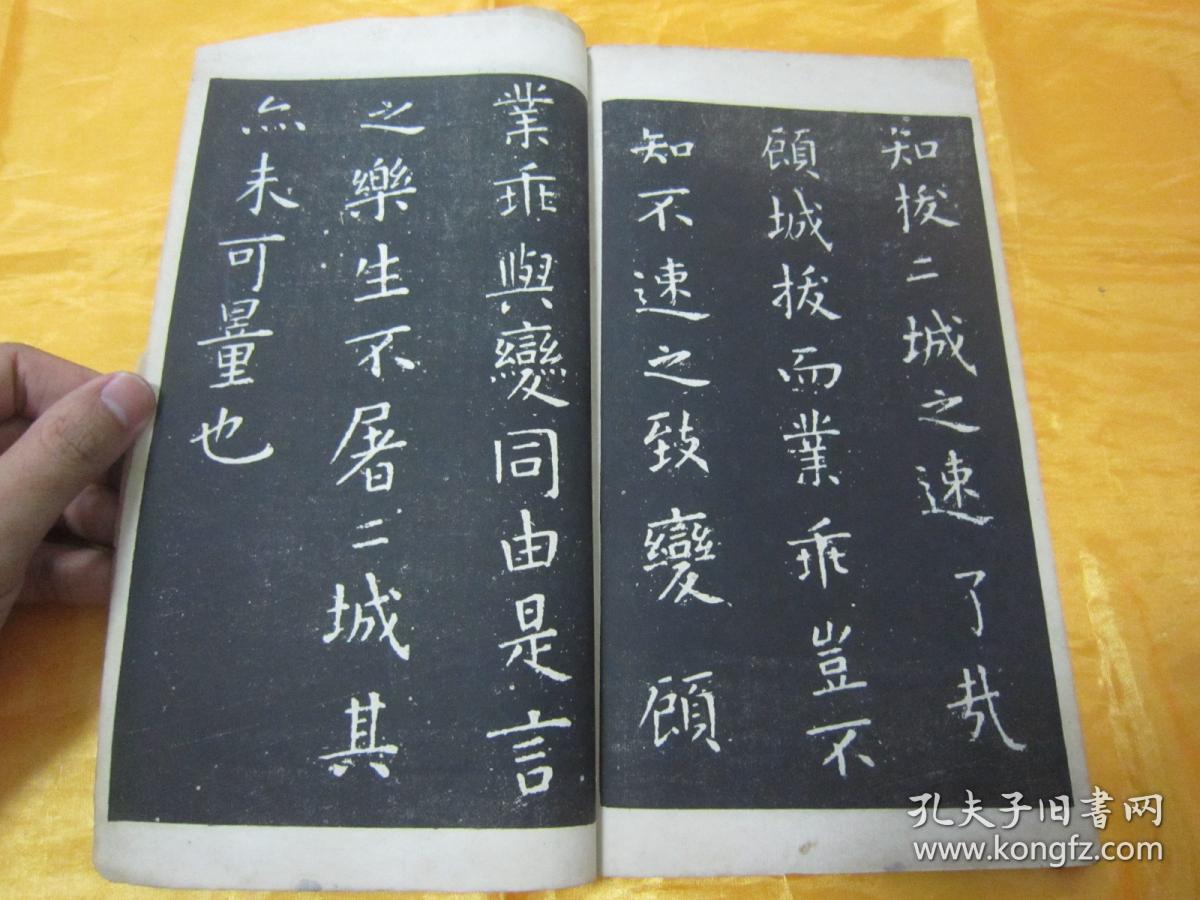 知拔二城之速了哉
顧城拔而業乖豈不
知不速之致變顧
業乖與變同由是言
之樂生不屠二城其
亦未可量也
孔夫子旧書网
www.kongfz.com